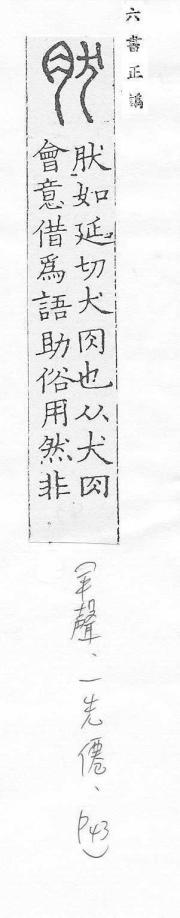 六書正譌
肰
肰如延切犬肉也从犬肉
會意借爲語助俗用然非
（平聲、一先僊、P43）